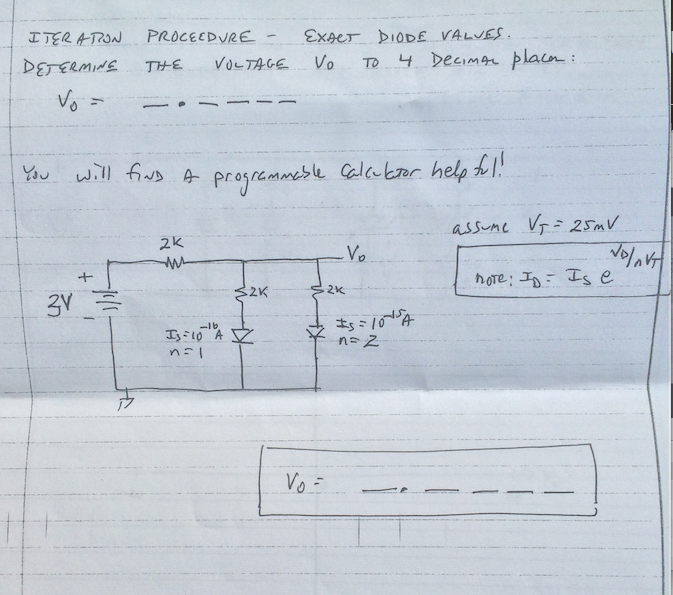 ITERATION PROCEEDURE - EXACT DIODE VALUES.
DETERMINE THE VOLTAGE Vo TO 4 DECIMAL places:
Vo = _ . _ _ _ _
You will find A programmable calculator helpful!
assume VT = 25mV
note: ID = IS e^VD/nVT
2K
Vo
+
3V
-
2K
2K
IS=10^-16 A
n=1
IS=10^-15 A
n=2
Vo = _ . _ _ _ _